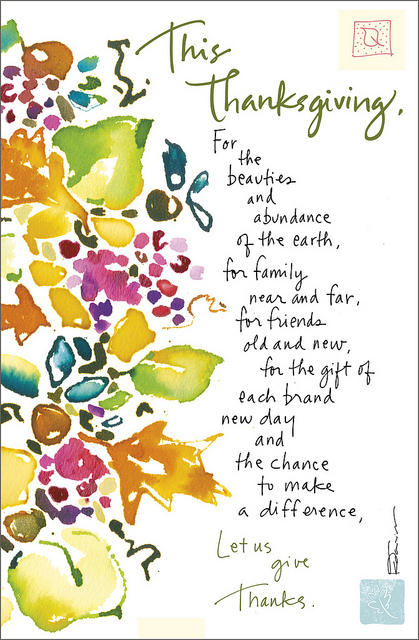 This
Thanksgiving,
For
the
beauties
and
abundance
of the earth,
for family
near and far,
for friends
old and new,
for the gift of
each brand
new day
and
the chance
to make
a difference,
Let us
give
Thanks.